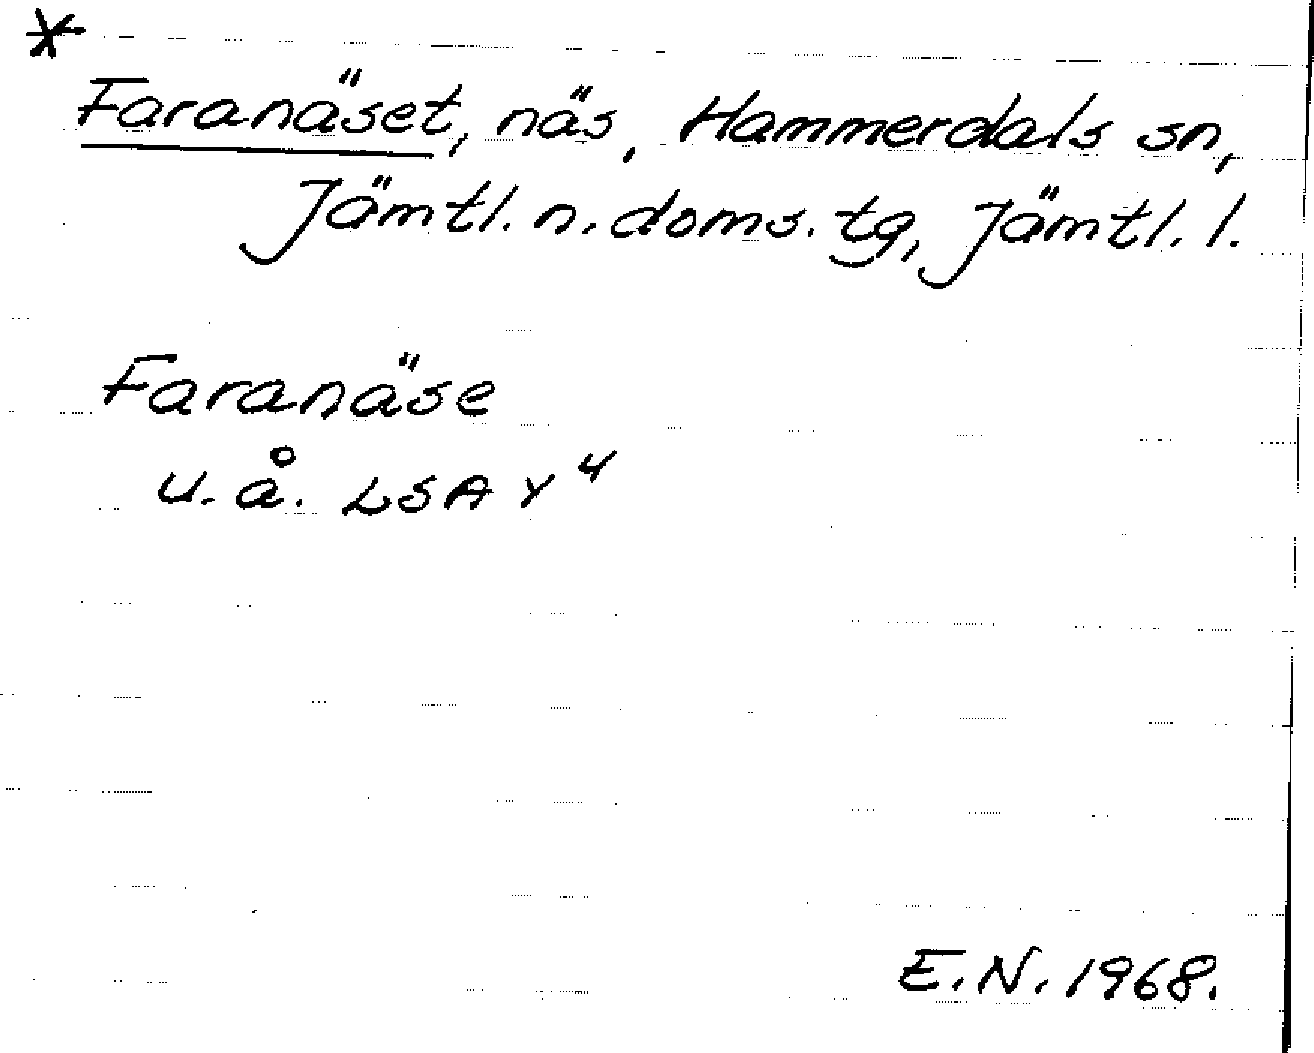 *
Faranäset, näs, Hammerdals sn,
Jämtl. n. doms. tg, Jämtl. l.
Faranäse
u. å. LSA Y 4
E.N. 1968.